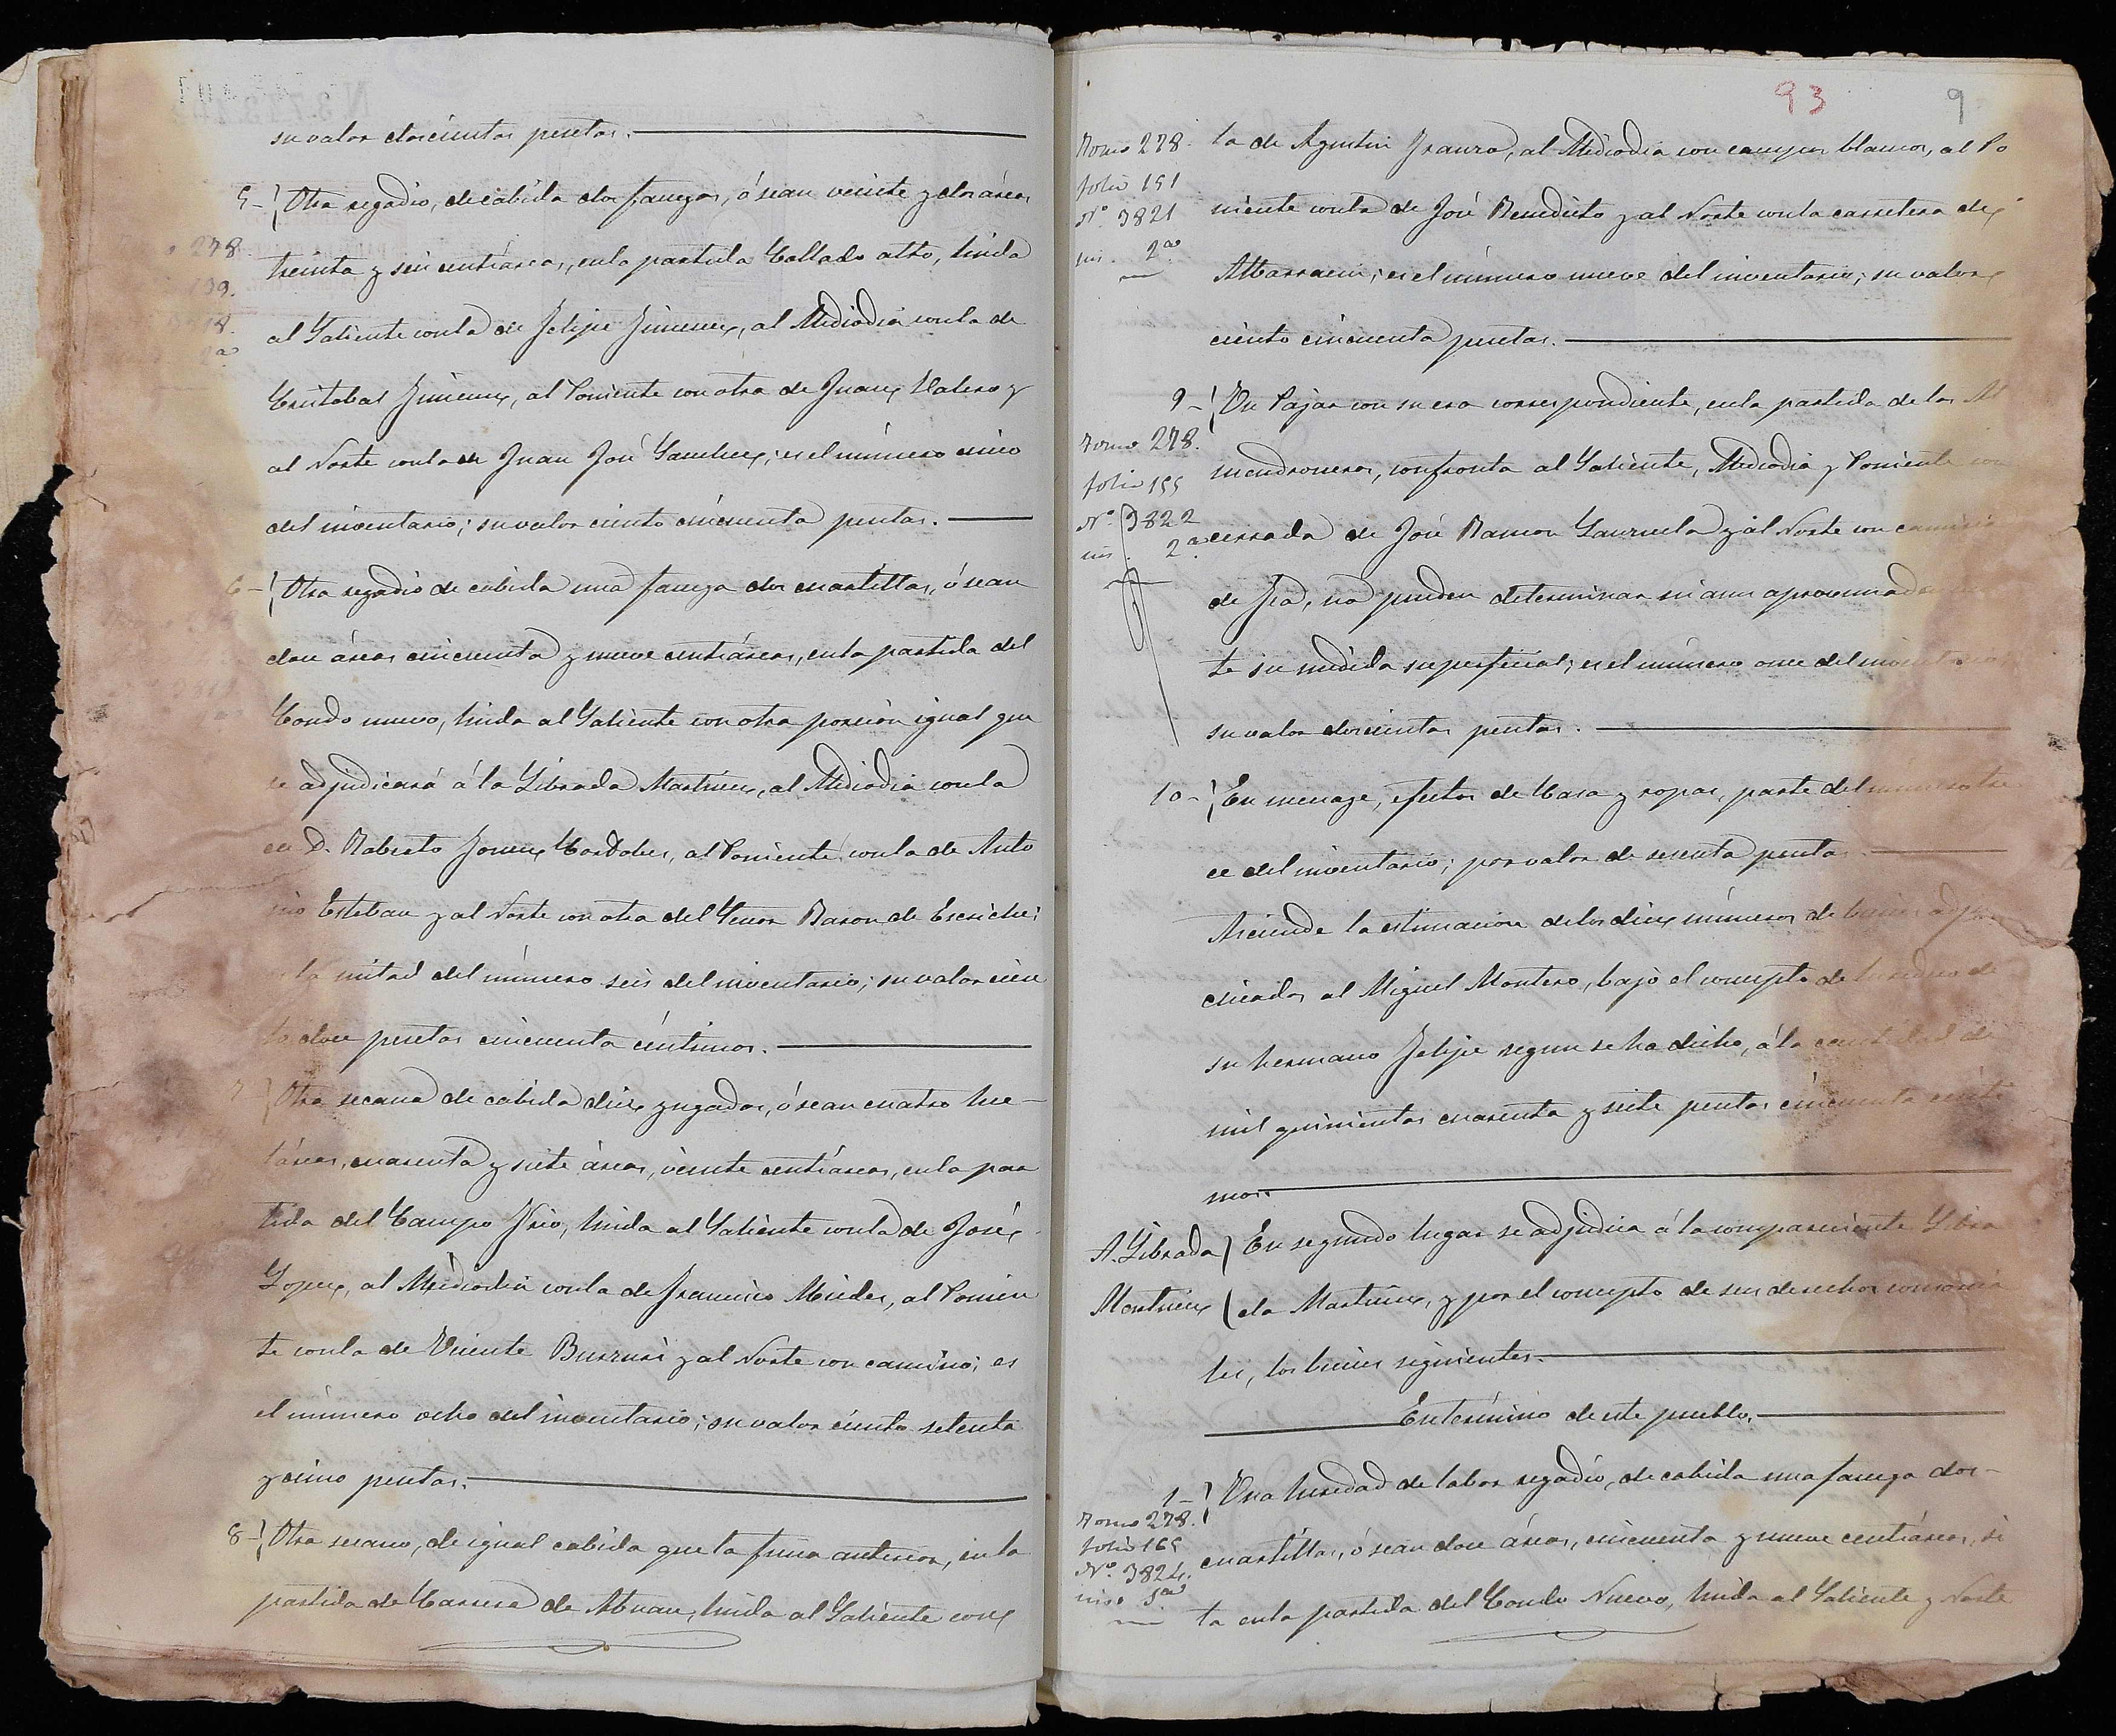 su valor doscientas pesetas.
5- Otra regadio, de cabida dos fanegas, ó sean veinte y dos áreas
278.
199.
treinta y seis centiáreas, en la partida Collado alto, linda
al Saliente con la de Felipe Jimenez, al Mediodia con la de
Cristobal Jimenez, al Poniente con otra de Juan Valero y
al Norte con la de Juan José Sanchez; es el número cinco
del inventario; su valor ciento cincuenta pesetas.
6- Otra regadio de cabida una fanega dos cuartillas, ó sean
doce áreas cincuenta y nueve centiáreas, en la partida del
Condo nuevo, linda al Saliente con otra porcion igual que
se adjudicará á la Librada Martinez, al Mediodia con la
de D. Roberto Gomez Cordobes, al Poniente con la de Anto
nio Esteban y al Norte con otra del Señor Baron de Escriche;
la mitad del número seis del inventario; su valor cien
to doce pesetas cincuenta céntimos.
7 Otra secana de cabida diez yugadas, ó sean cuatro hec-
táreas, cuarenta y siete áreas, veinte centiáreas, en la par
tida del Campo Frio, linda al Saliente con la de José
Lopez, al Mediodia con la de Francisco Mieder, al Ponien
te con la de Vicente Burruri y al Norte con camino; es
el número ocho del inventario; su valor ciento setenta
y cinco pesetas.
8- Otra secano, de igual cabida que la finca anterior, en la
partida de Carrera de Atuan, linda al Saliente con
93 9
Tomo 278.
folio 151
Nº 3821
ins. 2ª
la de Agustin Franco, al Mediodia con campos blancos, al Po
niente con la de José Benedicto y al Norte con la carretera de
Albarracin; es el número nueve del inventario; su valor
ciento cincuenta pesetas.
9- Un Pajar con su era correspondiente, en la partida de los Al
Tomo 278.
folio 155
Nº 3822
ins. 2ª
mendroneros, confronta al Saliente, Mediodia y Poniente con
cerrada de José Ramon Sanruela y al Norte con camino
de , no pueden determinar ni aun aproximada
te su medida superficial; es el número once del inventario;
su valor doscientas pesetas.
10- En menage, efectos de Casa y ropas, parte del número tre
ce del inventario; por valor de sesenta pesetas.
Asciende la estimacion de los diez números de bienes adju
dicados al Miguel Montero, bajo el concepto de heredero de
su hermano Felipe segun se ha dicho, á la cantidad de
mil quinientas cuarenta y siete pesetas cincuenta cénti
mos.
A Librada
Martinez
En segundo lugar se adjudica á la compareciente Libra
da Martinez, y por el concepto de sus derechos consorcia
les, los bienes siguientes.
En término de este pueblo.
1- Una heredad de labor regadio, de cabida una fanega dos
Tomo 278.
folio 165
Nº 3824.
ins. 1ª
cuartillas, ó sean doce áreas, cincuenta y nueve centiáreas, si
ta en la partida del Condo Nuevo, linda al Saliente y Norte